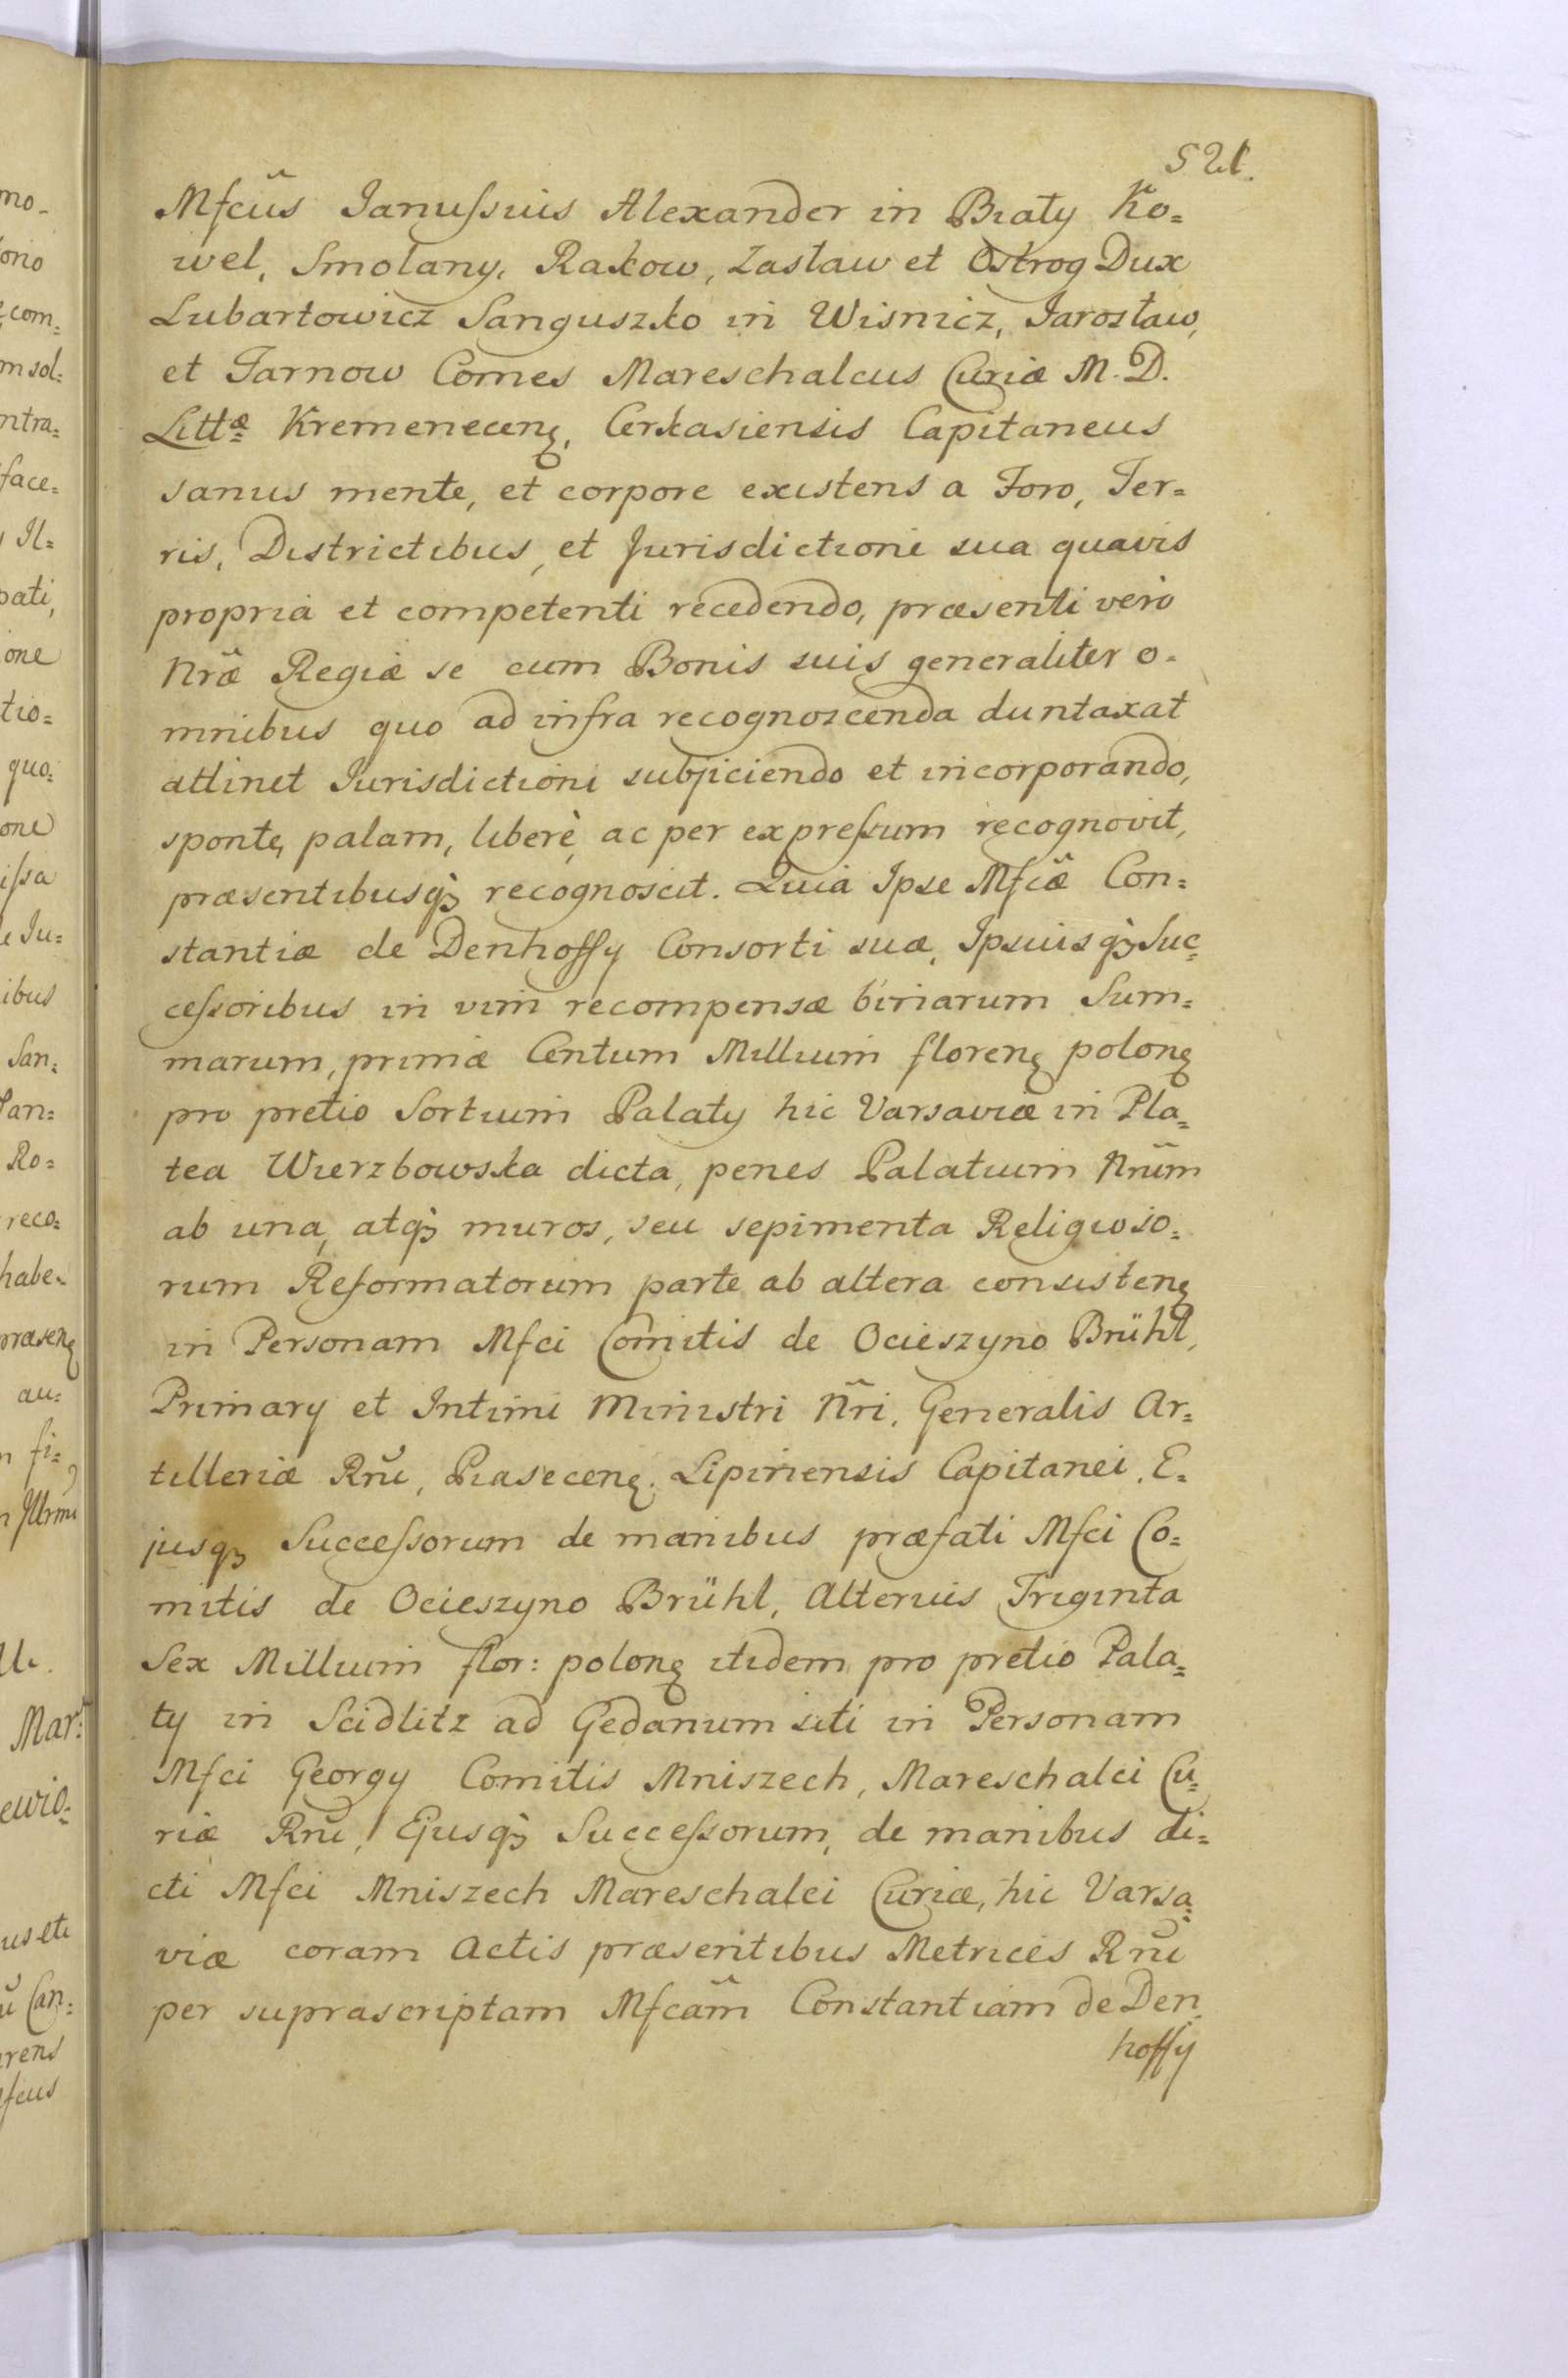 521.
Mfcũs Januſsius Alexander in Biały Ko=
wel, Smolany, Rakow, Zasław et Ostrog Dux
Lubartowicz Sanguszko in Wisnicz, Jarosław,
et Tarnow Comes Mareschalcus Curiæ M. D.
Littæ Kremenecenę, Cerkasiensis Capitaneus
sanus mente, et corpore existens a Foro, Ter=
ris, Districtibus, et Jurisdictione sua quavis
propria et competenti recedendo, præsenti verò
Nræ̃ Regiæ se cum Bonis suis generaliter o=
mnibus quo ad infra recognoscenda duntaxat
attinet Jurisdictioni subjiciendo et incorporando,
sponte, palam, liberè, ac per expreſsum recognovit,
præsentibusqȝ recognoscit. Quia Ipse Mfcæ̃ Con=
stantiæ de Denhoffy Consorti suæ, Ipsiusqȝ Suc=
ceſsoribus in vim recompensæ binarum Sum=
marum, primæ Centum Millium florenę polonę
pro pretio Sortium Palaty hic Varsaviæ in Pla=
tea Wierzbowska dicta, penes Palatium Nrũm
ab una, atqȝ muros, seu sepimenta Religioso=
rum Reformatorum parte ab altera consistenę
in Personam Mfci Comitis de Ocieszyno Brühl,
Primary et Intimi Ministri Nr̃i, Generalis Ar=
tilleriæ Rnĩ, Piasecenę. Lipinensis Capitanei, E=
jusqȝ Succeſsorum de manibus præfati Mfci Co=
mitis de Ocieszyno Brühl, Alterius Triginta
Sex Millium flor: polonę itidem pro pretio Pala=
ty in Scidlitz ad Gedanum siti in Personam
Mfci Georgy Comitis Mniszech, Mareschalci Cu=
riæ Rnĩ, Ejusqȝ Succeſsorum, de manibus di=
cti Mfci Mniszech Mareschalci Curiæ, hic Varsa=
viæ coram Actis præsentibus Metrices Rnĩ
per suprascriptam Mfcãm Constantiam de Den
hoffy